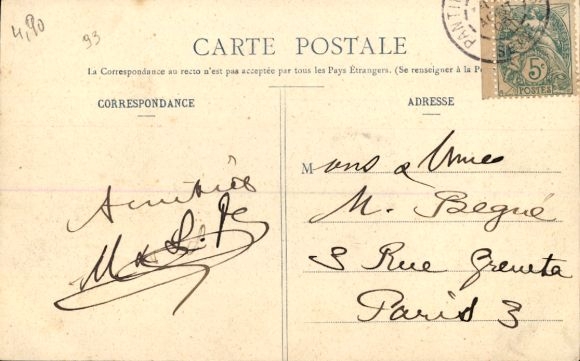 4,90
93
CARTE POSTALE
La Correspondance au recto n'est pas acceptée par tous les Pays Étrangers. (Se renseigner à la Po
CORRESPONDANCE
ADRESSE
PANTIN
5c
POSTES
Amitiés
M & L.
Mons & Mme
M. Begué
3 Rue Greneta
Paris 3